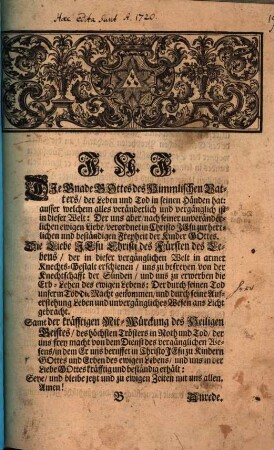 Haec edita sunt A. 1720.
J. N. J.
DJe Gnade GOttes des Himmlischen Vat-
ters / der Leben und Tod in seinen Händen hat:
ausser welchem alles veränderlich und vergänglich ist
in dieser Welt: Der uns aber nach seiner unveränder-
lichen ewigen Liebe / verordnet in Christo JEsu zur herr-
lichen und beständigen Freyheit der Kinder GOttes.
Die Liebe JEsu Christi des Fürsten des Le-
bens / der in dieser vergänglichen Welt in armer
Knechts-Gestalt erschienen / uns zu befreyen von der
Knechtschafft der Sünden / und uns zu erwerben die
Erb-Lehen des ewigen Lebens: Der durch seinen Tod
unserm Tod die Macht genommen / und durch seine Auf-
erstehung Leben und unvergängliches Wesen ans Licht
gebracht.
Samt der kräfftigen Mit-Würckung des Heiligen
Geistes / des höchsten Trösters in Noth und Tod / der
uns frey macht von dem Dienst des vergänglichen We-
sens / in dem Er uns beruffet in Christo JEsu zu Kindern
GOttes und Erben des ewigen Lebens / und uns in der
Liebe GOttes kräfftig und beständig erhält:
Seye / und bleibe jetzt und zu ewigen Zeiten mit uns allen.
Amen!
B
Anrede.